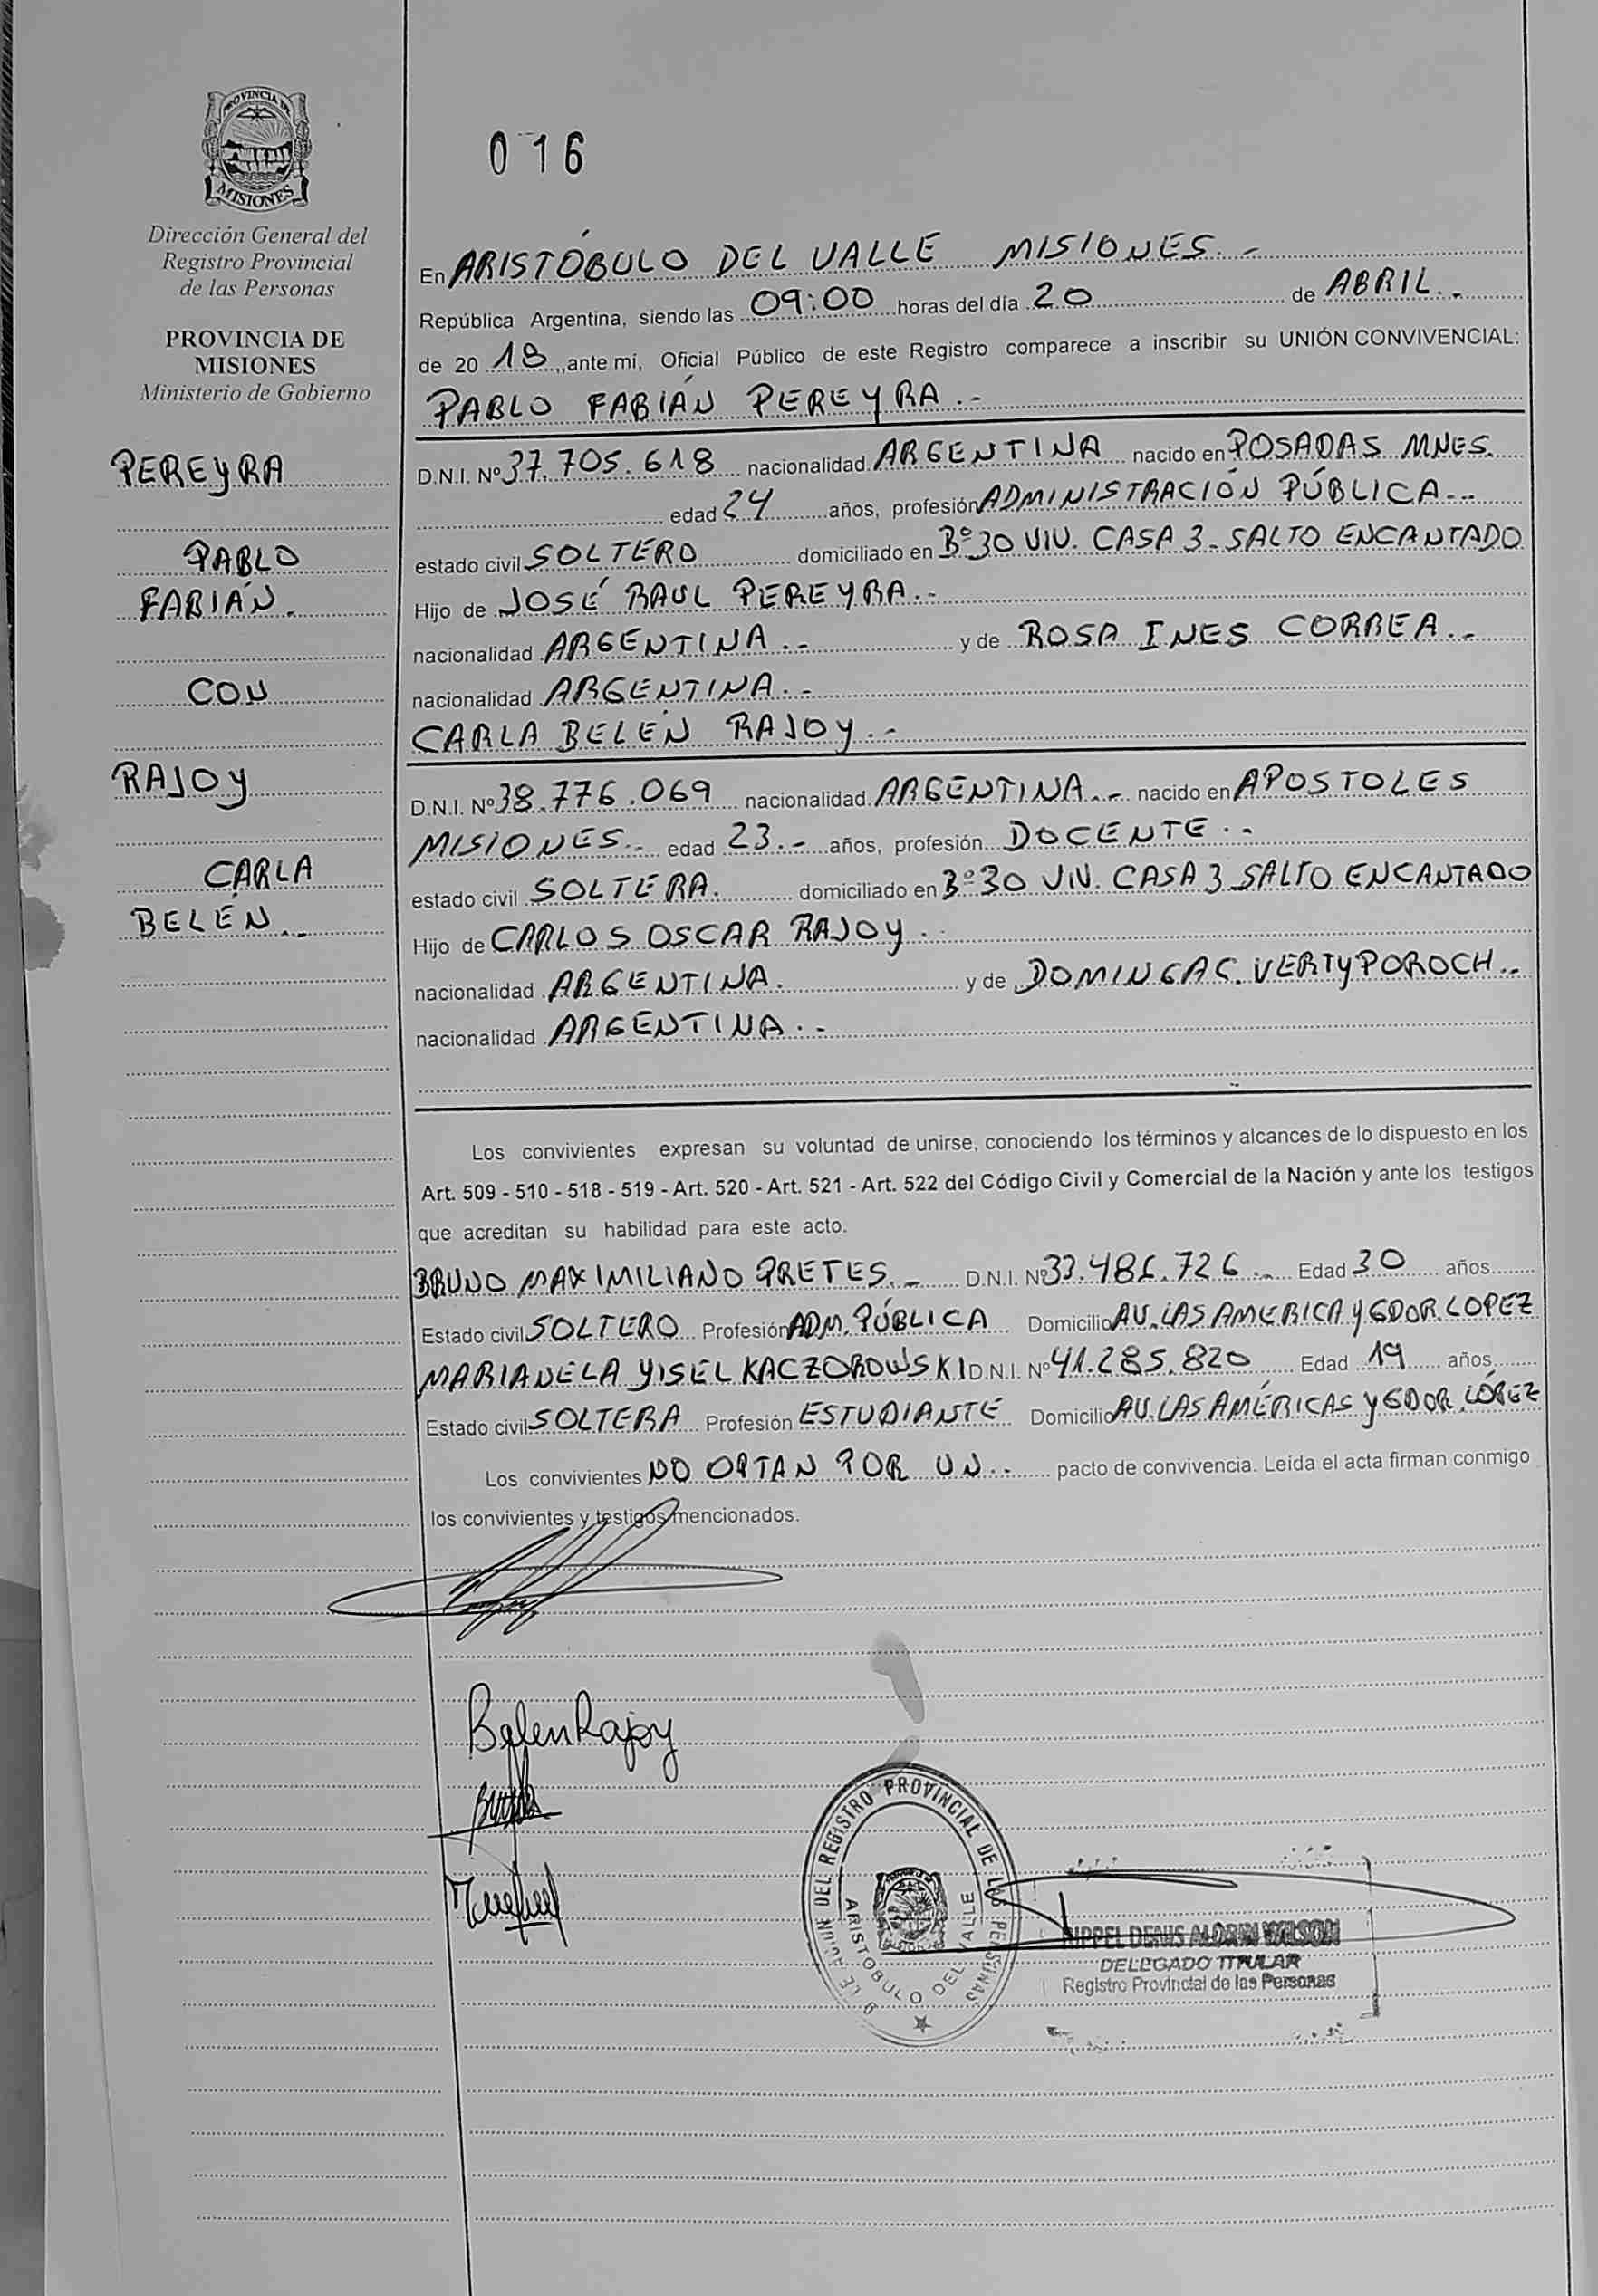 PROVINCIA DE
MISIONES
Dirección General del
Registro Provincial
de las Personas
PROVINCIA DE
MISIONES
Ministerio de Gobierno
PEREYRA
PABLO
FABIÁN.
CON
RAJOY
CARLA
BELÉN..
016
En ARISTÓBULO DEL VALLE MISIONES.-
República Argentina, siendo las 09:00 horas del día 20 de ABRIL.-
de 20 18, ante mí, Oficial Público de este Registro comparece a inscribir su UNIÓN CONVIVENCIAL:
PABLO FABIÁN PEREYRA.-
D.N.I. Nº 37.705.618 nacionalidad ARGENTINA nacido en POSADAS MNES.
edad 24 años, profesión ADMINISTRACIÓN PÚBLICA.-
estado civil SOLTERO domiciliado en Bº 30 VIV. CASA 3-SALTO ENCANTADO
Hijo de JOSÉ RAUL PEREYRA.-
nacionalidad ARGENTINA.- y de ROSA INES CORREA.-
nacionalidad ARGENTINA.-
CARLA BELÉN RAJOY.-
D.N.I. Nº 38.776.069 nacionalidad ARGENTINA.- nacido en APOSTOLES
MISIONES.- edad 23.- años, profesión DOCENTE.-
estado civil SOLTERA. domiciliado en Bº 30 VIV. CASA 3 SALTO ENCANTADO
Hijo de CARLOS OSCAR RAJOY.-
nacionalidad ARGENTINA. y de DOMINGA C. VERTYPOROCH.-
nacionalidad ARGENTINA.-
Los convivientes expresan su voluntad de unirse, conociendo los términos y alcances de lo dispuesto en los
Art. 509 - 510 - 518 - 519 - Art. 520 - Art. 521 - Art. 522 del Código Civil y Comercial de la Nación y ante los testigos
que acreditan su habilidad para este acto.
BRUNO MAXIMILIANO PRETES.- D.N.I. Nº Edad 30 años
Estado civil SOLTERO Profesión ADM. PÚBLICA Domicilio AV. LAS AMERICA Y GDOR. LOPEZ
MARIANELA YISEL KACZOROWSKI D.N.I. Nº 41.285.820 Edad 19 años
Estado civil SOLTERA Profesión ESTUDIANTE Domicilio AV. LAS AMÉRICAS Y GDOR. LÓPEZ
Los convivientes NO OPTAN POR UN.- pacto de convivencia. Leída el acta firman conmigo
los convivientes y testigos mencionados.
Belen Rajoy
DEL REGISTRO PROVINCIAL DE LAS PERSONAS
ARISTOBULO DEL VALLE
DENIS WILSON
DELEGADO TITULAR
Registro Provincial de las Personas